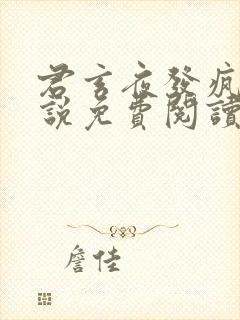 君言夜發瘋
說免費閱讀
詹佳